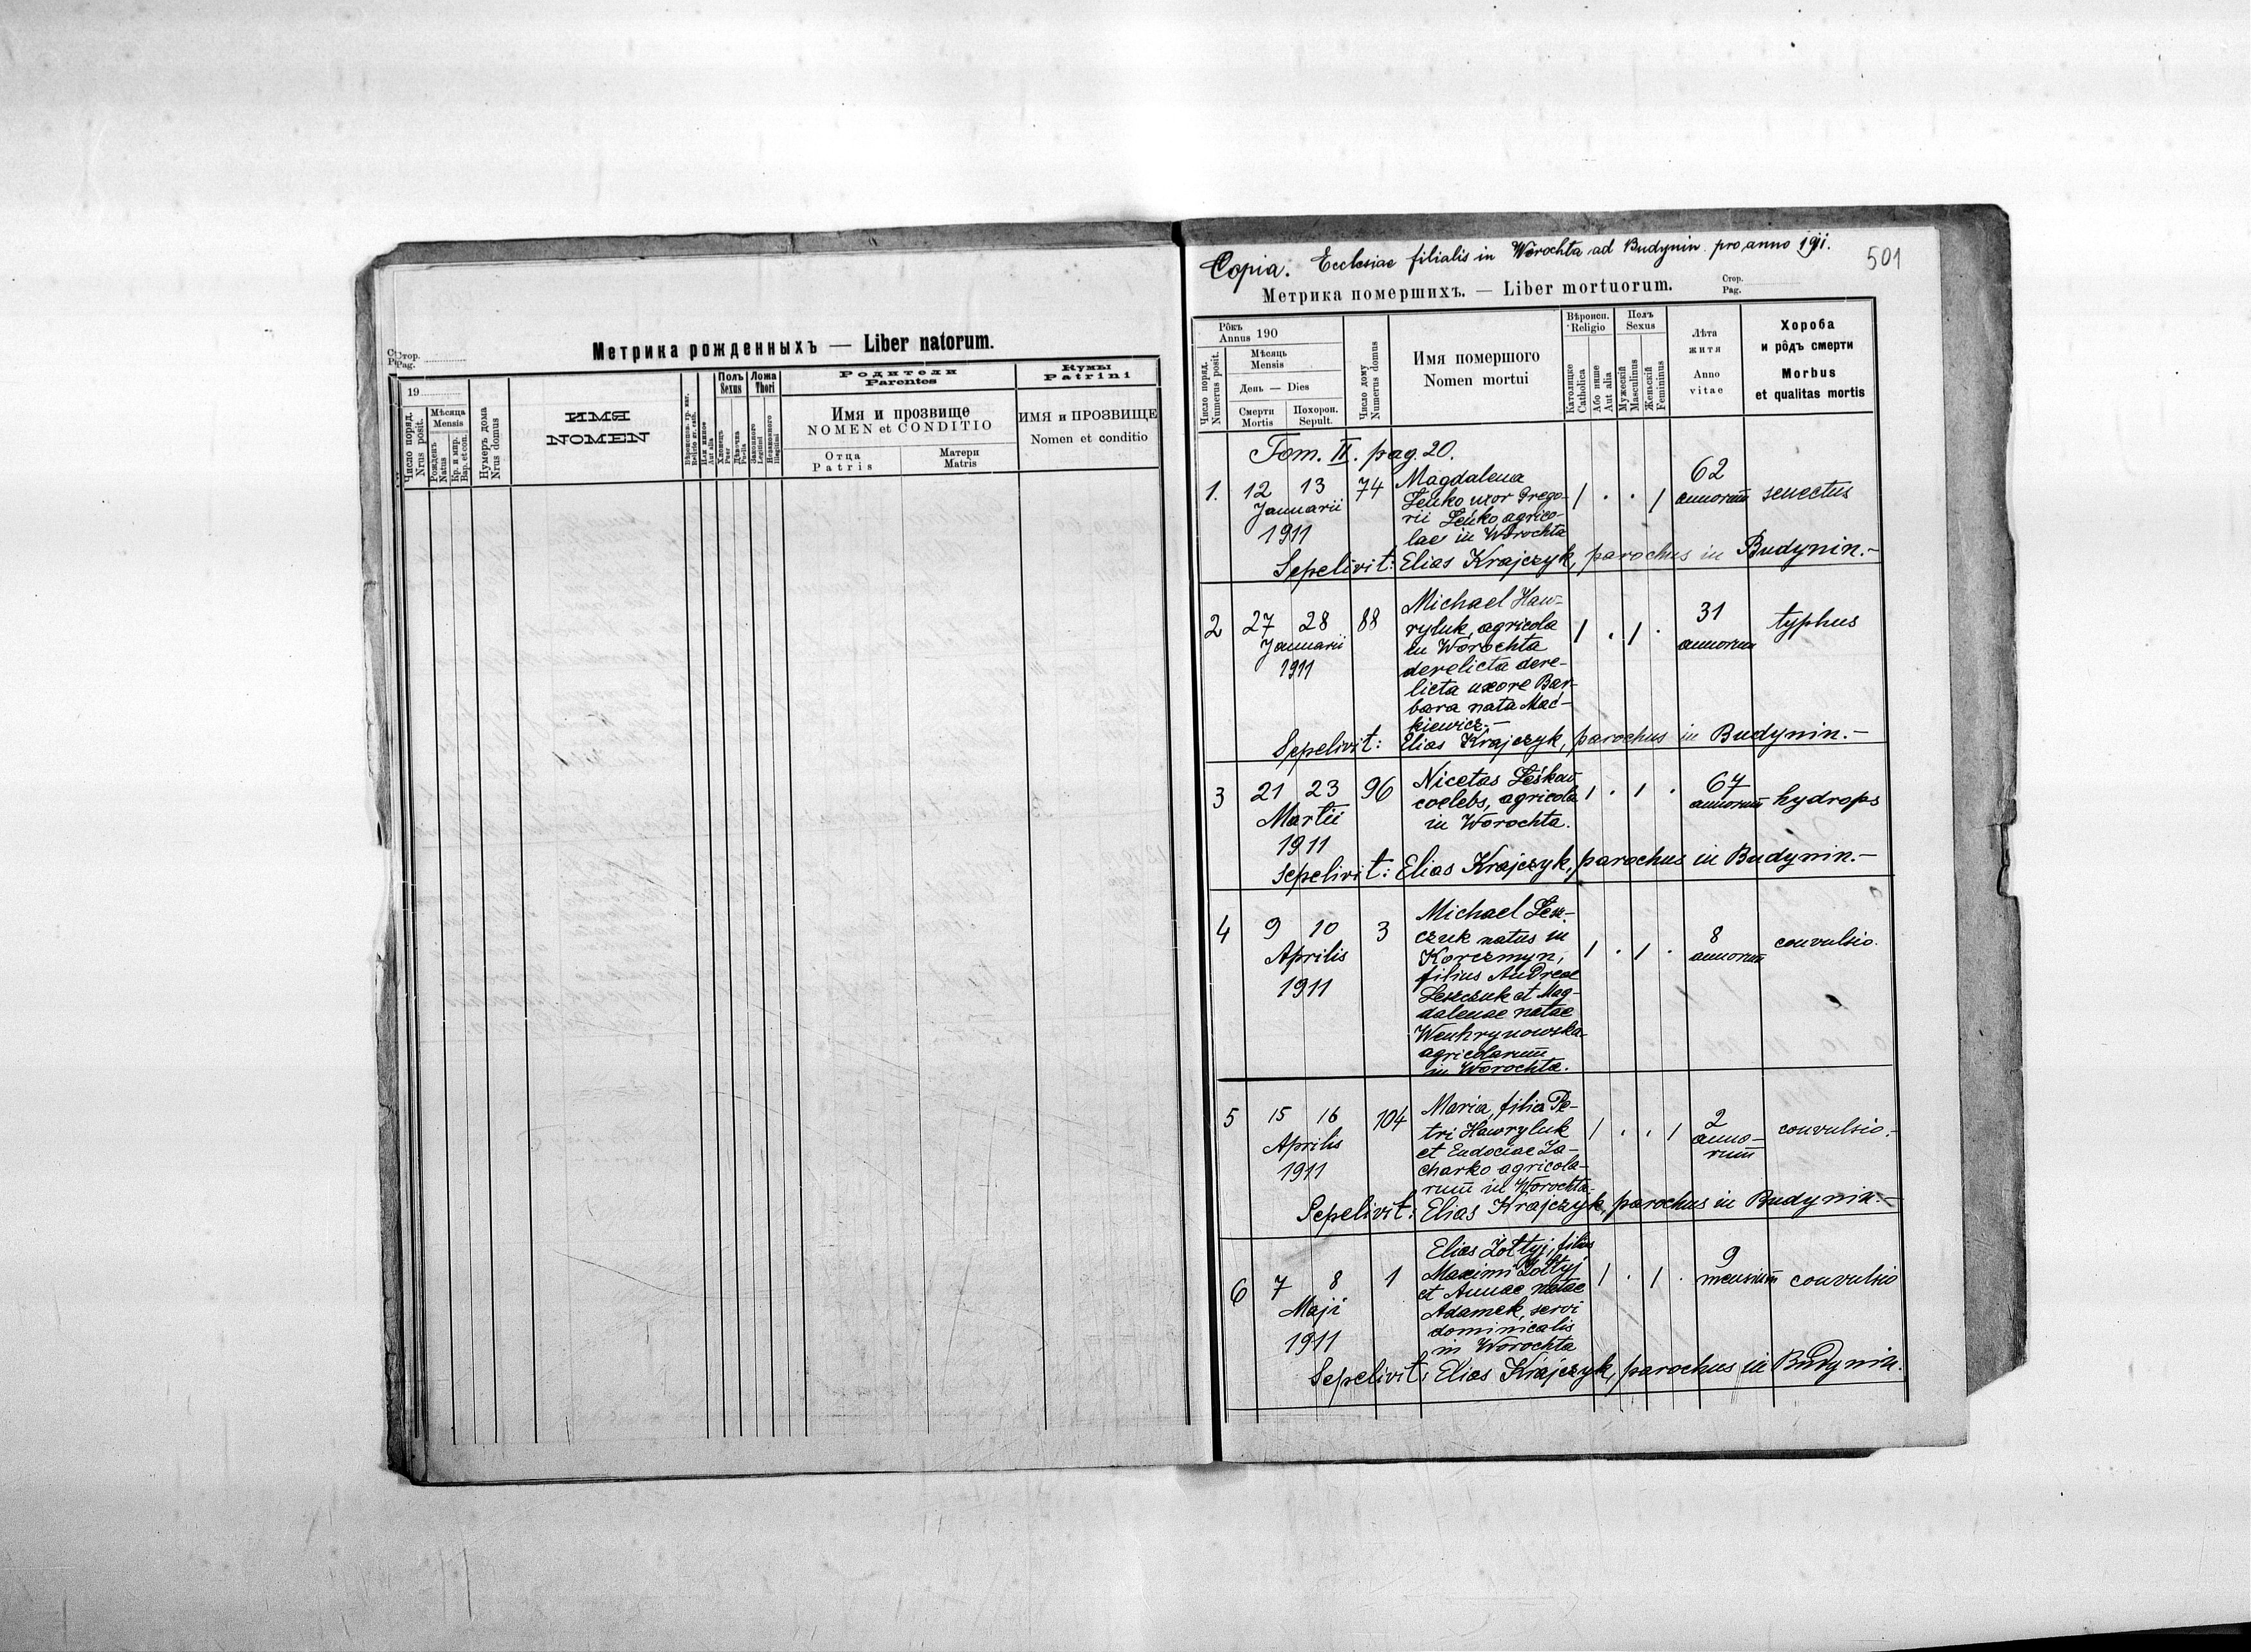 Стор.
Pag.
Метрика рожденныхъ — Liber natorum.
19
Число поряд.
Nrus posit.
Мѣсяца
Mensis
Рожденъ
Natus
Кр. и мир.
Bap. et con.
Нумеръ дома
Nrus domus
ИМЯ
NOMEN
Вѣроиспов. гр. кат.
Religio gr. cath.
Или инное
Aut alia
Полъ
Sexus
Хлопецъ
Puer
Дѣвочка
Puella
Ложа
Thori
Законного
Legitimi
Незаконного
Illegitimi
Родители
Parentes
Имя и прозвище
NOMEN et CONDITIO
Отца
Patris
Матери
Matris
Кумы
Patrini
ИМЯ и ПРОЗВИЩЕ
Nomen et conditio
Copia. Ecclesiae filialis in Worochta ad Budynin pro anno 1911.
501
Метрика померших​ъ. — Liber mortuorum.
Стор.
Pag.
Число поряд.
Numerus posit.
Рôкъ
Annus 190
Мѣсяць
Mensis
День — Dies
Смерти
Mortis
Похорон.
Sepult.
Число дому
Numerus domus
Имя помершого
Nomen mortui
Вѣроисп.
Religio
Католицке
Catholica
Або инше
Aut alia
Полъ
Sexus
Мужескій
Masculinus
Женьскій
Femininus
Лѣта
житя
Anno
vitae
Хороба
и рôдъ смерти
Morbus
et qualitas mortis
Tom. II. pag. 20.
1. 12 13 74 Magdalena / . . / 62 senectus
Januarii Leńko uxor Grego- annorum
1911 rii Leńko agrico-
lae in Worochta
Sepelivit: Elias Krajczyk, parochus in Budynin.-
2 27 28 88 Michael Haw- / . / . 31 typhus
Januarii ryluk, agricola annorum
1911 in Worochta
derelicta dere-
licta uxore Bar-
bara nata Mać-
kiewicz.-
Sepelivit: Elias Krajczyk, parochus in Budynin.-
3 21 23 96 Nicetas Leśkow / . / . 67 hydrops
Martii coelebs, agricola annorum
1911 in Worochta.
Sepelivit: Elias Krajczyk, parochus in Budynin.-
4 9 10 3 Michael Lesz- / . / . 8 convulsio.
Aprilis czuk natus in annorum
1911 Korczmyn,
filius Andreae
Leszczuk et Mag-
dalenae natae
agricolarum
in Worochta.
5 15 16 104 Maria, filia Pe- / . . / 2 convulsio.-
Aprilis tri Hawryluk anno-
1911 et Eudociae Za- rum
charko agricola-
rum in Worochta.
Sepelivit: Elias Krajczyk, parochus in Budynin.-
6 7 8 1 Elias Żołtyj, filius / . / . 9 convulsio
Maji Maximi Żołtyj mensium
1911 et Annae natae
Adamek, servi
dominicalis
in Worochta
Sepelivit: Elias Krajczyk, parochus in Budynin.